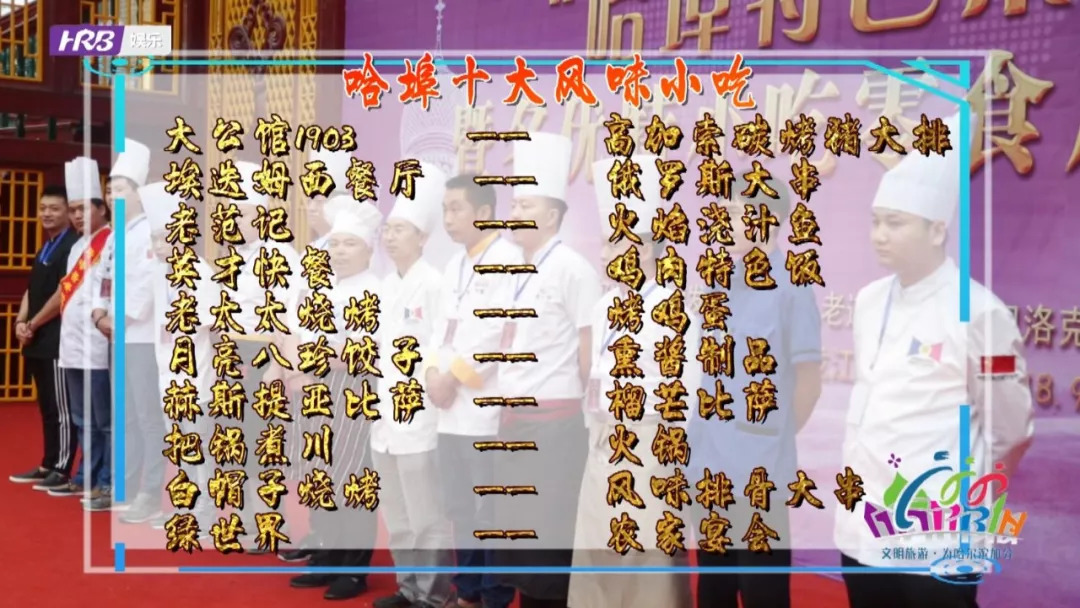 HRB 娱乐
哈埠十大风味小吃
大公馆1903 —— 高加索碳烤猪大排
埃迭姆西餐厅 —— 俄罗斯大串
老范记 —— 火焰浇汁鱼
英才快餐 —— 鸡肉特色饭
老太太烧烤 —— 烤鸡蛋
月亮八珍饺子 —— 熏酱制品
赫斯提亚比萨 —— 榴芒比萨
把锅煮川 —— 火锅
白帽子烧烤 —— 风味排骨大串
绿世界 —— 农家宴会
HARBIN
文明旅游·为哈尔滨加分